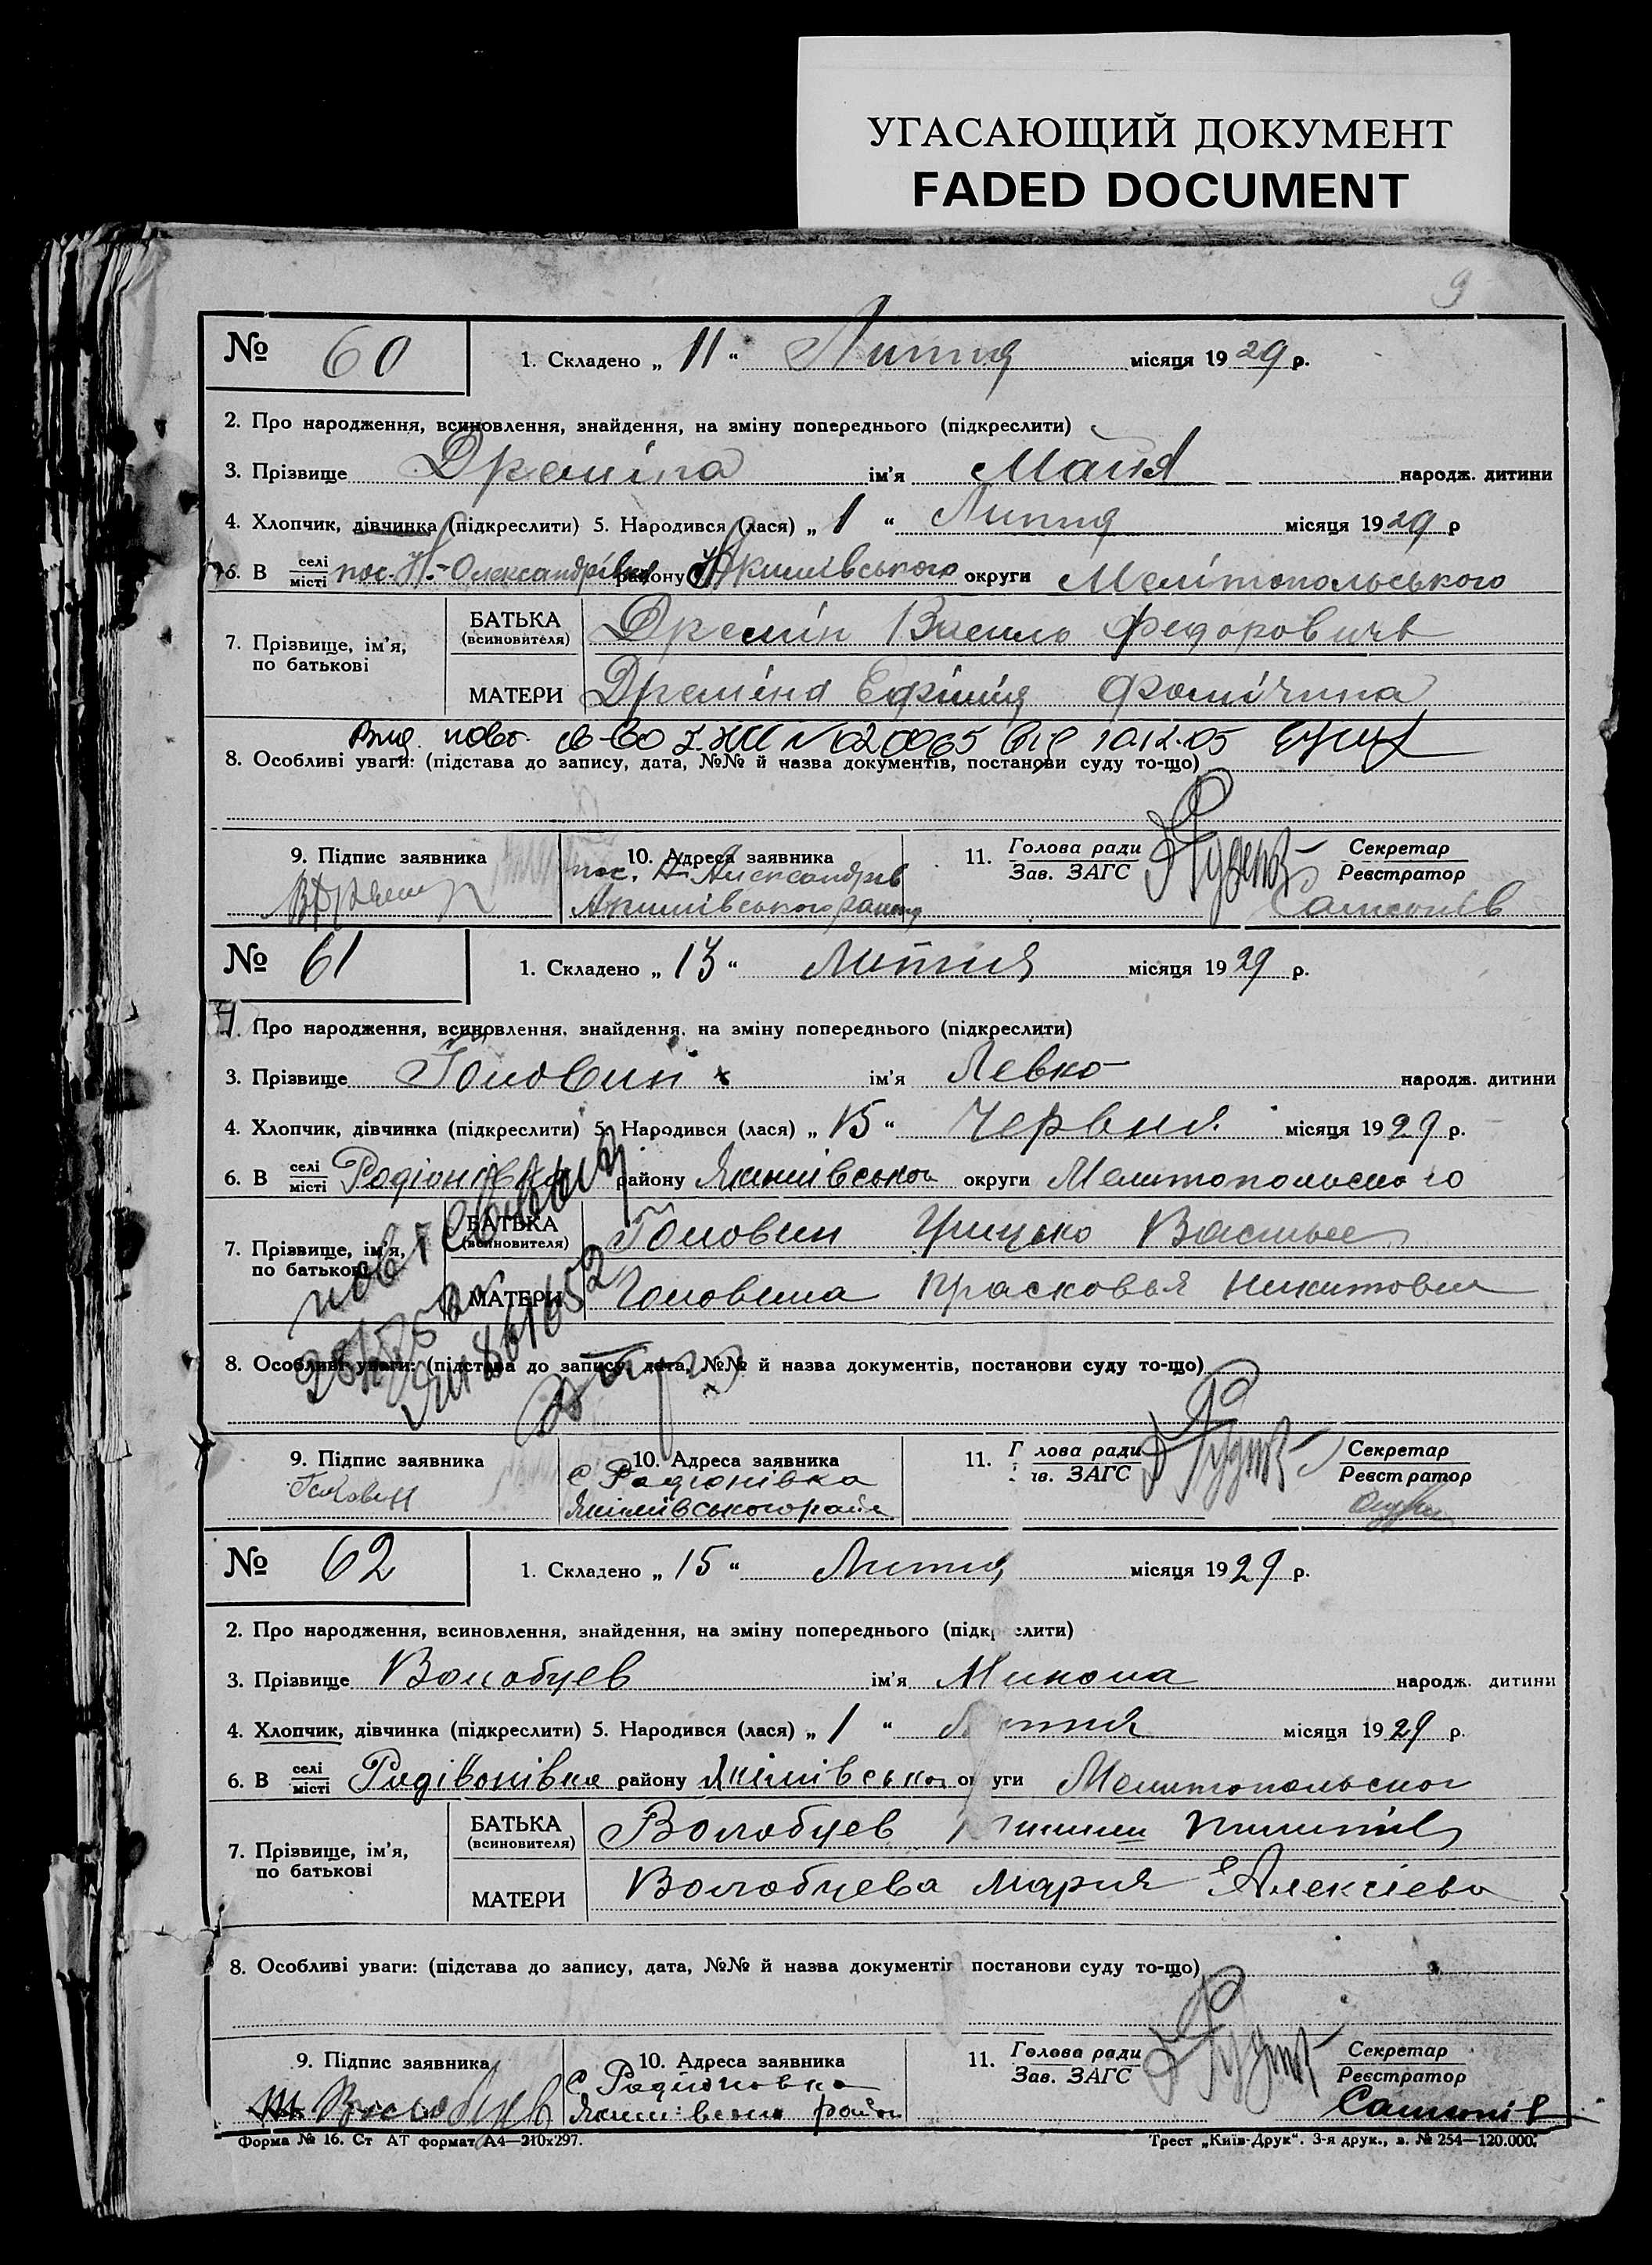 УГАСАЮЩИЙ ДОКУМЕНТ
FADED DOCUMENT
9
№ 60 1. Складено „ 11 “ Липня місяця 19 29 р.
2. Про народження, всиновлення, знайдення, на зміну попереднього (підкреслити)
3. Прізвище Дреміна ім’я Майя народж. дитини
4. Хлопчик, дівчинка (підкреслити) 5. Народився (лася) „ 1 “ Липня місяця 19 29 р
6. В селі/місті пос. Н.-Олександрівка району Якимівського округи Мелітопольського
7. Прізвище, ім’я, по батькові
БАТЬКА (всиновителя) Дремін Василь Федоровичь
МАТЕРИ Дреміна Ефимія Фомічина
Вид. повт. св-во
8. Особливі уваги: (підстава до запису, дата, №№ й назва документів, постанови суду то-що)
9. Підпис заявника
10. Адреса заявника
пос. Н-Александрів
Акимівського району
11. Голова ради
Зав. ЗАГС
Секретар
Реєстратор
Самсонів
№ 61 1. Складено „ 13 “ Липня місяця 19 29 р.
Про народження, всиновлення, знайдення, на зміну попереднього (підкреслити)
3. Прізвище Головин ім’я Левко народж. дитини
4. Хлопчик, дівчинка (підкреслити) 5. Народився (лася) „ 15 “ Червня місяця 19 29 р.
6. В селі/місті Родіонівка району Якимівської округи Мелитопольского
7. Прізвище, ім’я, по батькові
БАТЬКА (всиновителя) Головин Грицько
МАТЕРИ Головина Прасковья Никитовна
8. Особливі уваги: (підстава до запису, дата, №№ й назва документів, постанови суду то-що)
9. Підпис заявника
Головин
10. Адреса заявника
с Родіонівка
Якимівського райо
11. Г лова ради
ав. ЗАГС
Секретар
Реєстратор
№ 62 1. Складено „ 15 “ Липня місяця 19 29 р.
2. Про народження, всиновлення, знайдення, на зміну попереднього (підкр слити)
3. Прізвище Волобуев ім’я Микола народж. дитини
4. Хлопчик, дівчинка (підкреслити) 5. Народився (лася) „ 1 “ Липня місяця 19 29 р.
6. В селі/місті Родівонівка району Якимівської округи Мелитопольског
7. Прізвище, ім’я, по батькові
БАТЬКА (всиновителя) Волобуев
МАТЕРИ Волобуева Мария Алексієва
8. Особливі уваги: (підстава до запису, дата, №№ й назва документів постанови суду то-що)
9. Підпис заявника
Волобуев
10. Адреса заявника
с Родіоновка
район
11. Голова ради
Зав. ЗАГС
Секретар
Реєстратор
Самсонів
Форма № 16. Ст АТ формат А4—210х297.
Трест „Київ-Друк“. 3-я друк., з. № 254—120.000.